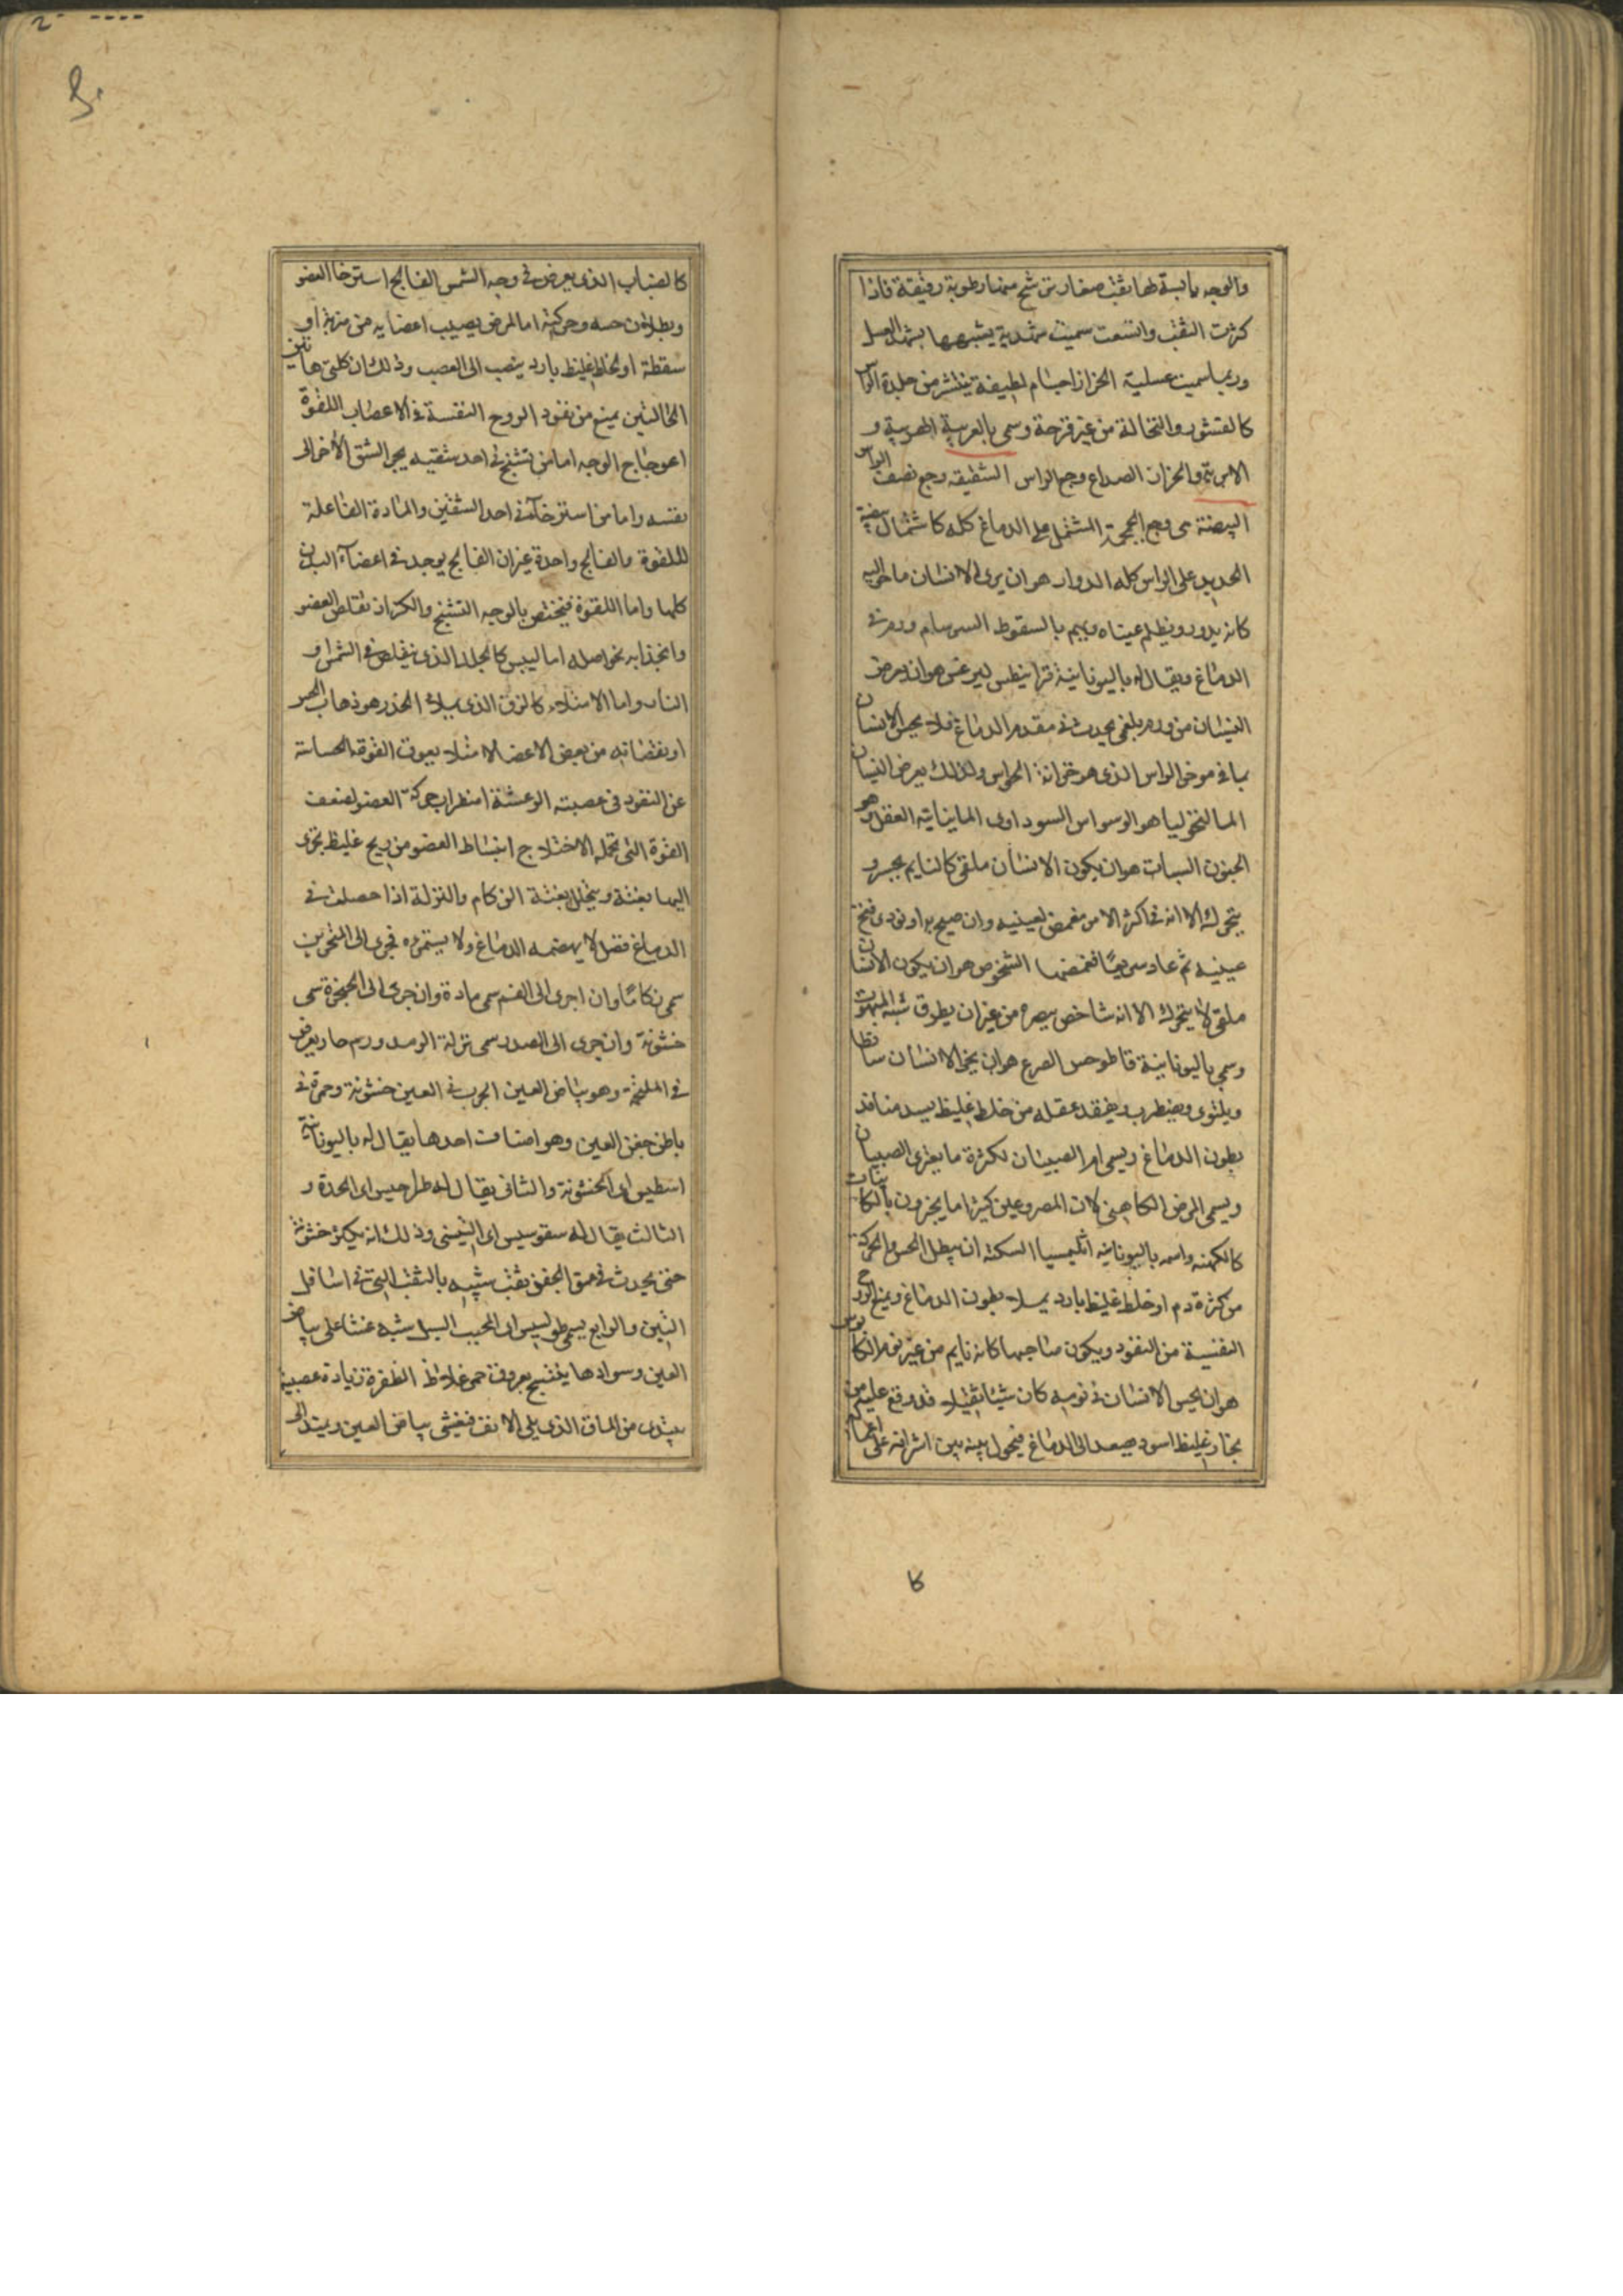 والوجه يابسة لها ثقب صغار ترشح منها رطوبة رقيقة فاذا
كثرت الثقب واتسعت سميت شهدية يشبهها بشهد العسل
وربما سميت عسلية الحزاز اجسام لطيفة ينتشر من جلدة الراس
كالقشور والنخالة من غير قرحة وسمى بالعربية الهبرية و
الابرية والحزاز الصداع وجع الراس الشقيقه وجع نصف الراس
البيضة هى وجع الجمجمة المشتمل على الدماغ كله كاشتمال بيضة
الحديد على الراس كله الدوار هو ان يرى الانسان ما حواليه
كانه يدور ويظلم عيناه ويهم بالسقوط السرسام ورم فى
الدماغ ويقال له باليونانية قرانيطس ليرغس هو ان يعرض
النسيان من ورم بلغمى يحدث فى مقدم الدماغ فلا يحس الانسان
بما فى موخر الراس الذى هو خزانة الحواس ولذلك يعرض النسيان
المالنخوليا هو الوسواس السوداوى المانيا تيه العقل وهو
الجنون السبات هو ان يكون الانسان ملقى كالنايم يحس و
يتحرك الا انه فى اكثر الامر مغمض لعينيه وان صيح به او نودى فتح
عينيه ثم عاد سريعًا فغمضها الشخوص هو ان يكون الانسان
ملقى لا يتحرك الا انه شاخص ببصره من غير ان يطرق شبه المبهوت
وسمى باليونانية قاطوحس الصرع هو ان يخر الانسان ساقطا
ويلتوى ويضطرب ويفقد عقله من خلط غليظ يسد منافذ
بطون الدماغ ويسمى ام الصبيان لكثرة ما يعترى الصبيان
ويسمى المرض الكاهنى لان المصروعين كثيرا ما يخبرون بالكاينات
كالكهنه واسمه باليونانيه ابليمسيا السكته ان يبطل الحس والحركة
من كثرة دم او خلط غليظ بارد يملا بطون الدماغ ويمنع الروح
النفسية من النفود ويكون صاحبها كانه نايم من غير نوم الكابوس
هو ان يحس الانسان فى نومه كان شيئا ثقيلا قد وقع عليه من
بخار غليظ اسود يصعد الى الدماغ فيحول بينه وبين اشراقه على
كا
كالضباب الذى يعرض فى وجه الشمس الفالج استرخا العضو
وبطلان حسه وحركته اما لمرض يصيب اعضايه من ضربة او
سقطة او لخلط غليظ بارد ينصب الى العصب وذلك ان كلتى هاتين
الحالتين يمنع من نفود الروح النفسة فى الاعصاب اللقوة
اعوجاج الوجه اما من تشنج فى احد شقيه يجر الشق الأخر الى
نفسه واما من استرخآء فى احد الشقين والمادة الفاعلة
للقوة والفالج واحدة غير ان الفالج يوجد فى اعضآء البدن
كلها واما اللقوة فيختص بالوجه التشنج والكزاز تقلص العضو
وانجذابه نحو اصله اما ليبس كالجلد الذى يتقلص فى الشمس او
النار واما الامتلاء كالزق الذى يملا الخدر هو ذهاب الحس
او نقصانه من بعض الاعضا لامتلا يعوق القوة الحساسة
عن النفود فى عصبته الرعشة اضطراب حركة العضو لضعف
القوة التى تحمله الاختلاج انبساط العضو من ريح غليظ تجرى
اليها بغتة ويتحلل بغتة الزكام والنزلة اذا حصلت فى
الدماغ فضل لا يهضمه الدماغ ولا يستمرءه فجرى الى المنخرين
سمى زكامًا وان اجرى الى الفم سمى مادة وان جرى الى الحنجرة سمى
خشونة وان جرى الى الصدر سمى نزلة الرمد ورم حار يعرض
فى الملتحمة وهو بياض العين الجرب فى العين خشونة وحمرة فى
باطن جفن العين وهو اصناف احدها يقال له باليونانية
اى الخشونة والثانى يقال له اى الحدة و
الثالث يقال له سقوسيس اى التينى وذلك انه يكثر خشونته
حتى يحدث فى عمق الجفن ثقب شبيه بالثقب التى فى اسافل
التين والرابع يسمى اى السبل شبه غشا على بياض
العين وسوادها ينتسج بعروق حمر غلاظ الظفرة زيادة عصبية
يبتدى من الماق الذى يلى الانف فيغشى بياض العين ويمتد الى